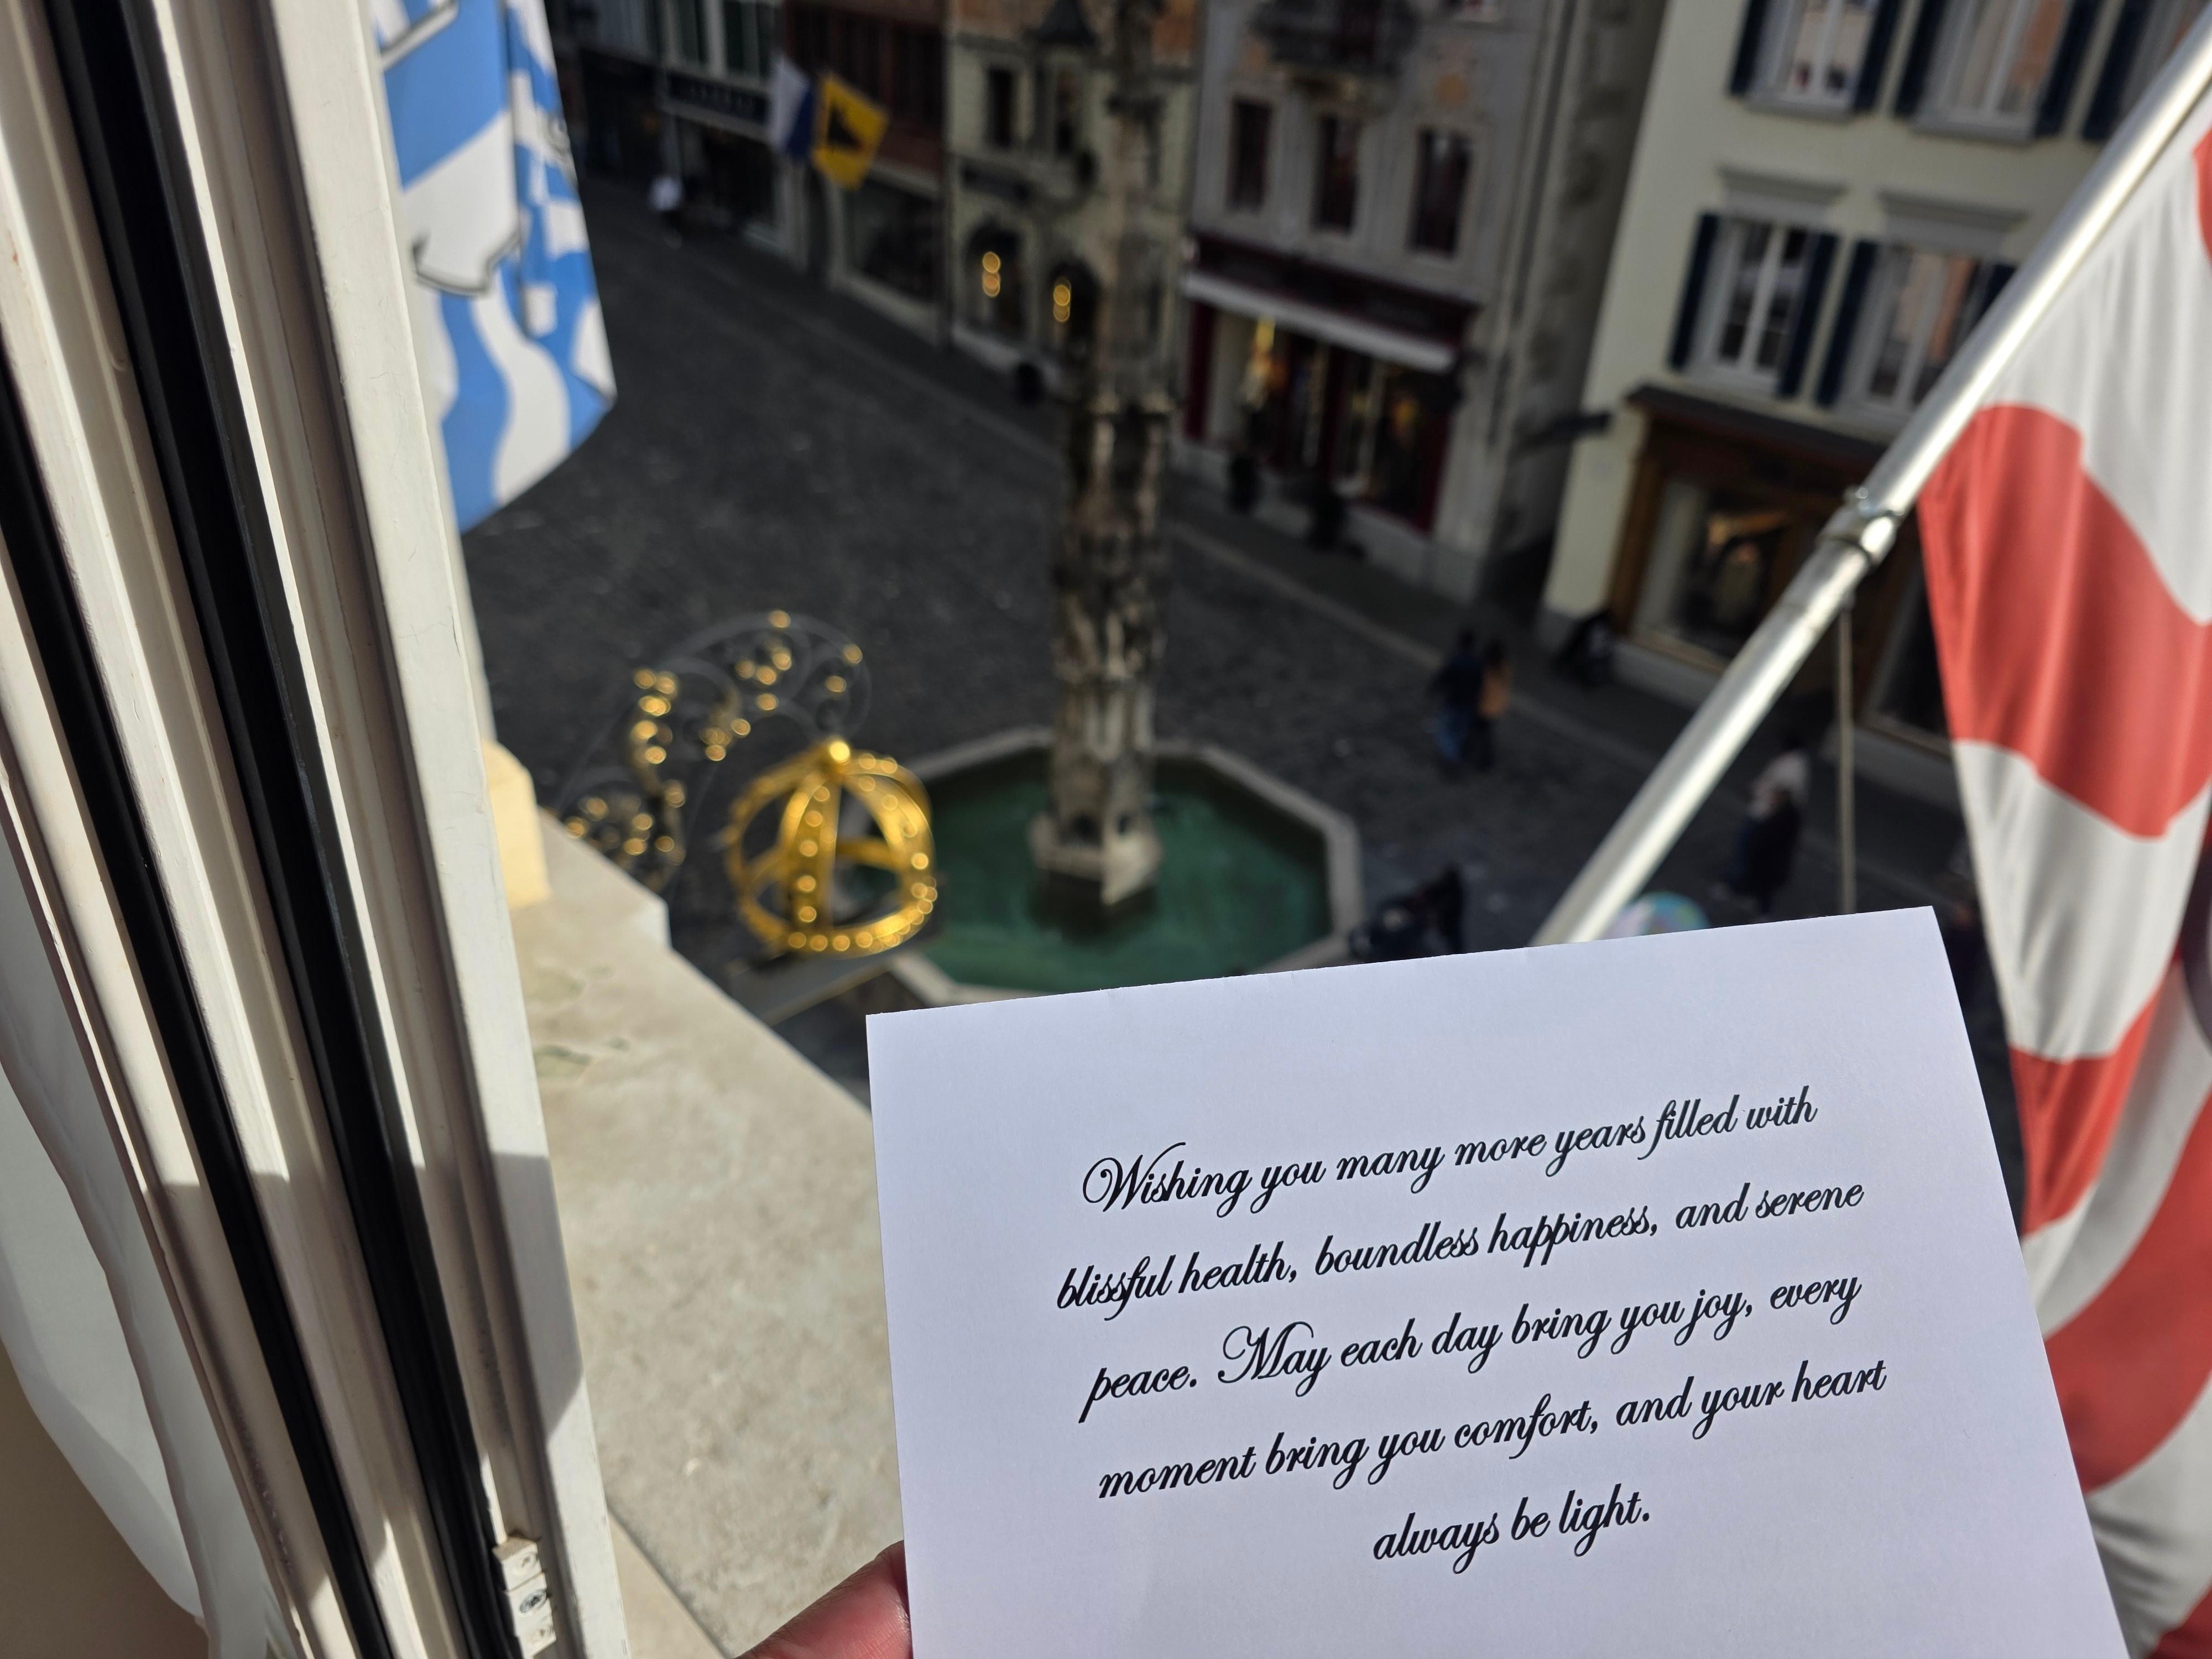 Wishing you many more years filled with
blissful health, boundless happiness, and serene
peace. May each day bring you joy, every
moment bring you comfort, and your heart
always be light.